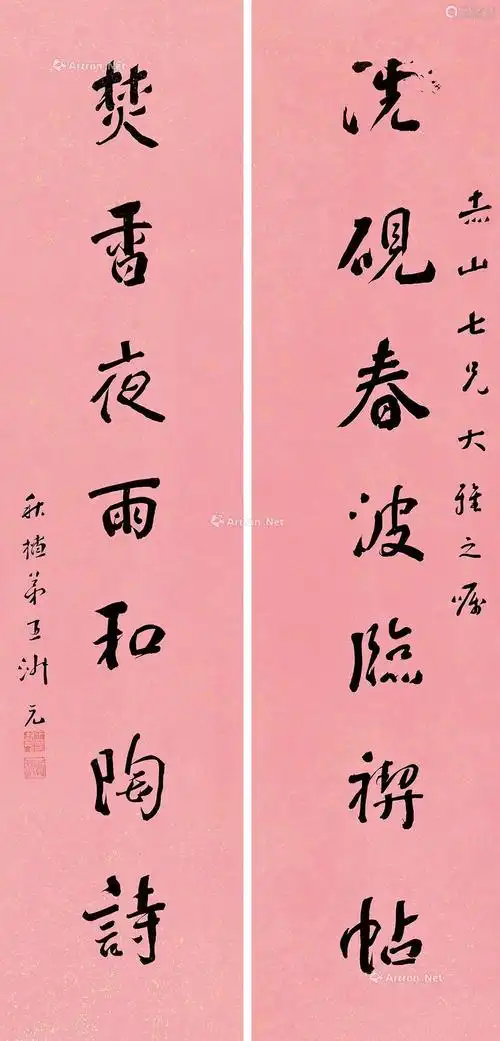 赤山七兄大雅之嘱
洗硯春波臨禊帖
焚香夜雨和陶詩
弟王元
Artron.Net
Artron.Net
Artron.Net